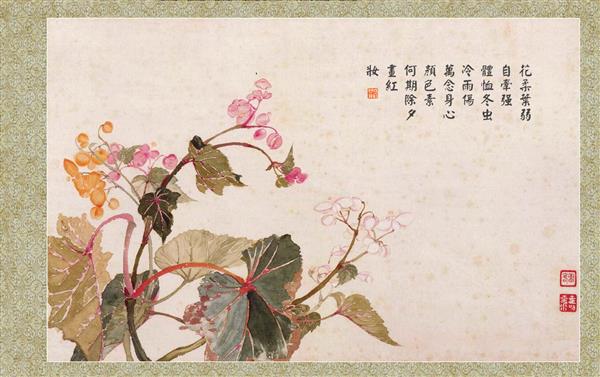 花柔葉弱
自牽强
體恤冬虫
冷雨傷
萬念身心
顏色素
何期除夕
畫紅
妝